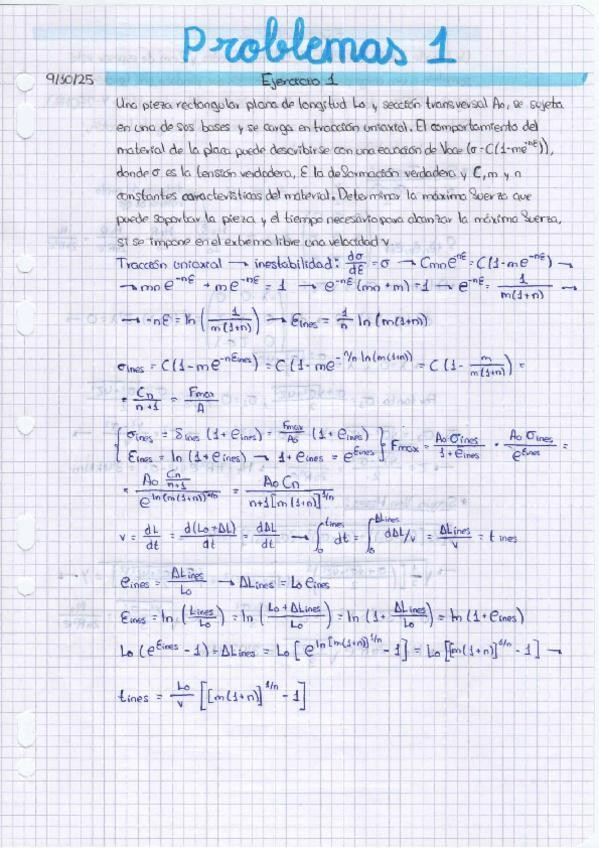 Problemas 1
9/10/25
Ejercicio 1
Una pieza rectangular plana de longitud Lo y sección transversal Ao, se sujeta
en una de sus bases y se carga en tracción uniaxial. El comportamiento del
material de la placa puede describirse con una ecuación de Voce (σ = C(1-me^-nε)),
donde σ es la tensión verdadera, ε la deformación verdadera y C, m y n
constantes características del material. Determinar la máxima fuerza que
puede soportar la pieza y el tiempo necesario para alcanzar la máxima fuerza,
si se impone en el extremo libre una velocidad v.
Tracción uniaxial → inestabilidad: dσ/dε = σ → Cmne^-nε = C(1-me^-nε) →
→ mne^-nε + me^-nε = 1 → e^-nε (mn+m) = 1 → e^-nε = 1/m(1+n) →
→ -nε = ln (1/m(1+n)) → εines = 1/n ln (m(1+n))
σines = C(1-me^-nεines) = C(1-me^-n/n ln(m(1+n))) = C(1- m/m(1+n)) =
= Cn/n+1 = Fmax/A
{σines = Sines (1+eines) = Fmax/Ao (1+eines)
εines = ln (1+eines) → 1+eines = e^εines} Fmax = Ao σines/1+eines = Ao σines/e^εines =
= Ao Cn/n+1 / e^ln(m(1+n))^1/n = Ao Cn/n+1[m(1+n)]^1/n
v = dL/dt = d(Lo+ΔL)/dt = dΔL/dt → ∫₀^tines dt = ∫₀^ΔLines dΔL/v = ΔLines/v = tines
eines = ΔLines/Lo → ΔLines = Lo eines
εines = ln (Lines/Lo) = ln (Lo+ΔLines/Lo) = ln (1+ ΔLines/Lo) = ln (1+eines)
Lo (e^εines - 1) = ΔLines = Lo [e^ln[m(1+n)]^1/n - 1] = Lo [[m(1+n)]^1/n - 1] →
tines = Lo/v [[m(1+n)]^1/n - 1]